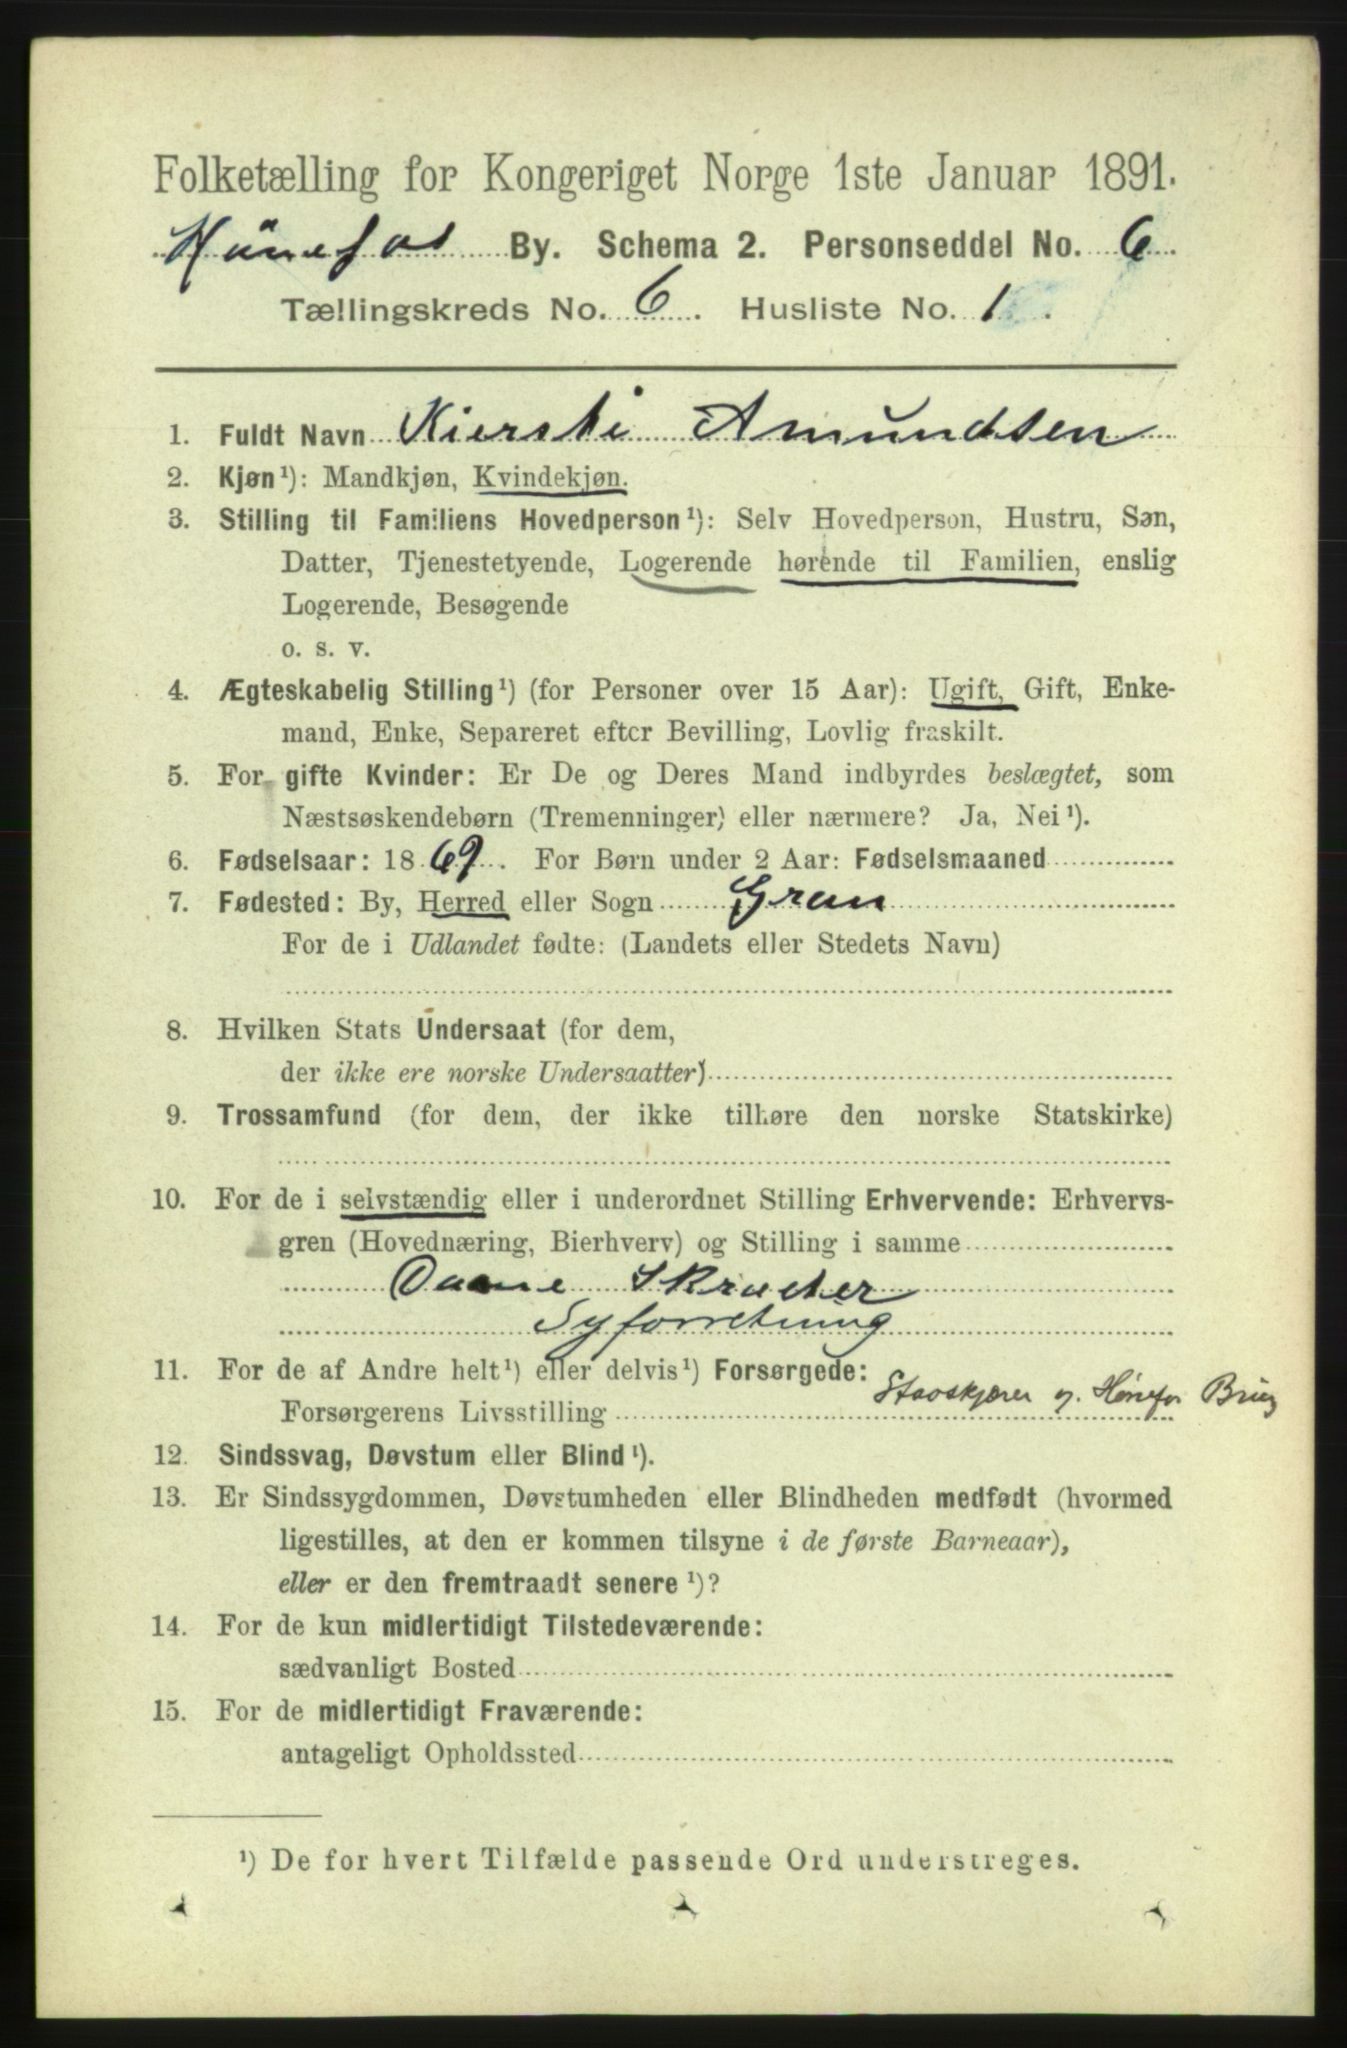 Folketælling for Kongeriget Norge 1ste Januar 1891.
Hønefos By. Schema 2. Personseddel No. 6
Tællingskreds No. 6. Husliste No. 1.
1. Fuldt Navn Kiersti Amundsen
2. Kjøn¹): Mandkjøn, Kvindekjøn.
3. Stilling til Familiens Hovedperson¹): Selv Hovedperson, Hustru, Søn,
Datter, Tjenestetyende, Logerende hørende til Familien, enslig
Logerende, Besøgende
o. s. v.
4. Ægteskabelig Stilling¹) (for Personer over 15 Aar): Ugift, Gift, Enke-
mand, Enke, Separeret efter Bevilling, Lovlig fraskilt.
5. For gifte Kvinder: Er De og Deres Mand indbyrdes beslægtet, som
Næstsøskendebørn (Tremenninger) eller nærmere? Ja, Nei¹).
6. Fødselsaar: 1869. For Børn under 2 Aar: Fødselsmaaned
7. Fødested: By, Herred eller Sogn Gran
For de i Udlandet fødte: (Landets eller Stedets Navn)
8. Hvilken Stats Undersaat (for dem,
der ikke ere norske Undersaatter)
9. Trossamfund (for dem, der ikke tilhøre den norske Statskirke)
10. For de i selvstændig eller i underordnet Stilling Erhvervende: Erhvervs-
gren (Hovednæring, Bierhverv) og Stilling i samme
Dame Skræder
Syforretning
11. For de af Andre helt¹) eller delvis¹) Forsørgede:
Forsørgerens Livsstilling Stavskjærer v. Hønefos Brug
12. Sindssvag, Døvstum eller Blind¹).
13. Er Sindssygdommen, Døvstumheden eller Blindheden medfødt (hvormed
ligestilles, at den er kommen tilsyne i de første Barneaar),
eller er den fremtraadt senere¹)?
14. For de kun midlertidigt Tilstedeværende:
sædvanligt Bosted
15. For de midlertidigt Fraværende:
antageligt Opholdssted
¹) De for hvert Tilfælde passende Ord understreges.